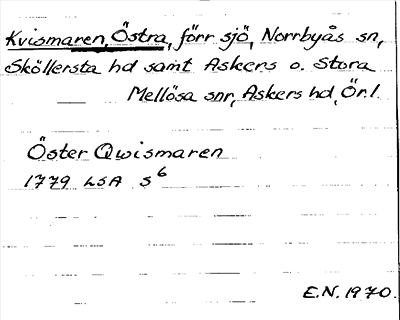 Kvismaren, Östra, förr sjö, Norrbyås sn,
Sköllersta hd samt Askers o. Stora
Mellösa snr, Askers hd, Ör. l.
Öster Qwismaren
1779 LSA S6
E.N. 1970.